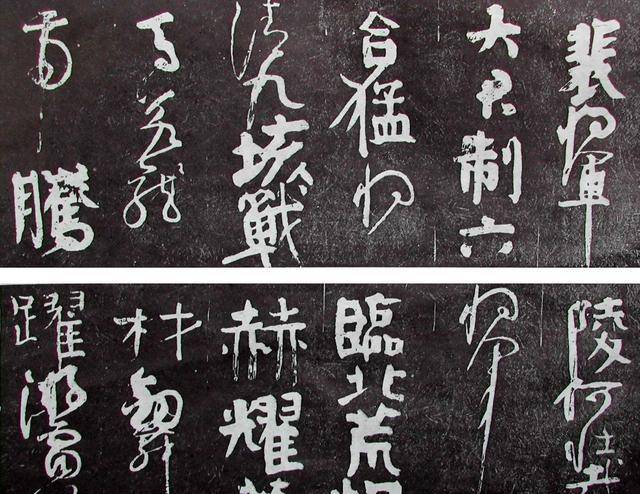 裴將軍
大君制六
合猛將
清九垓戰
馬若龍
虎騰
陵何壯哉
將軍
臨北荒烜
赫耀英
材劍舞
躍游電